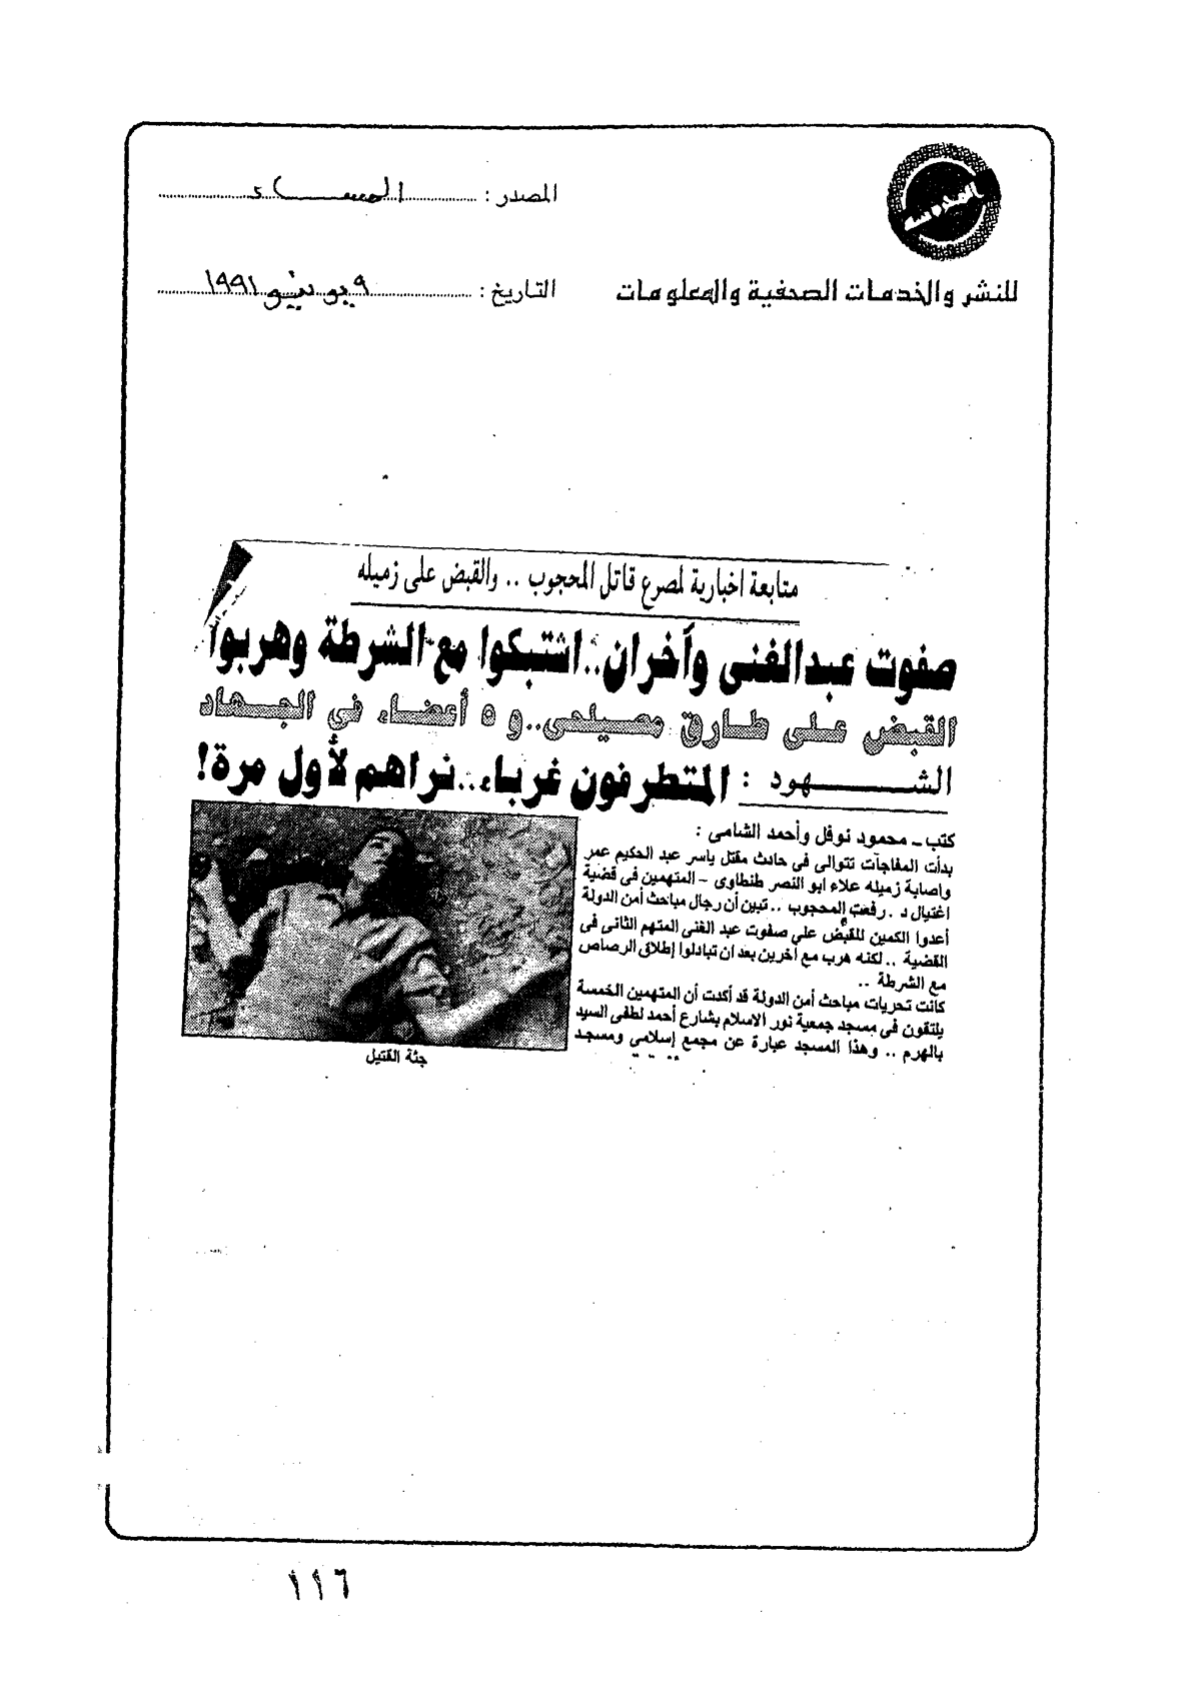 المصدر : المساء
للنشر والخدمات الصحفية والمعلومات
التاريخ : ٩ يونيو ١٩٩١
متابعة اخبارية لمصرع قاتل المحجوب .. والقبض على زميله
صفوت عبدالغنى وآخران .. اشتبكوا مع الشرطة وهربوا
القبض على طارق مصيلحى .. و ٥ أعضاء في الجهاد
الشهود : المتطرفون غرباء .. نراهم لأول مرة !
كتب ـ محمود نوفل وأحمد الشامى :
بدأت المفاجآت تتوالى فى حادث مقتل ياسر عبد الحكيم عمر
واصابة زميله علاء ابو النصر طنطاوى - المتهمين فى قضية
اغتيال د . رفعت المحجوب .. تبين أن رجال مباحث أمن الدولة
أعدوا الكمين للقبض على صفوت عبد الغنى المتهم الثانى فى
القضية .. لكنه هرب مع آخرين بعد ان تبادلوا إطلاق الرصاص
مع الشرطة ..
كانت تحريات مباحث أمن الدولة قد أكدت أن المتهمين الخمسة
يلتقون فى مسجد جمعية نور الاسلام بشارع أحمد لطفى السيد
بالهرم .. وهذا المسجد عبارة عن مجمع إسلامي ومسجد
جثة القتيل
١١٦